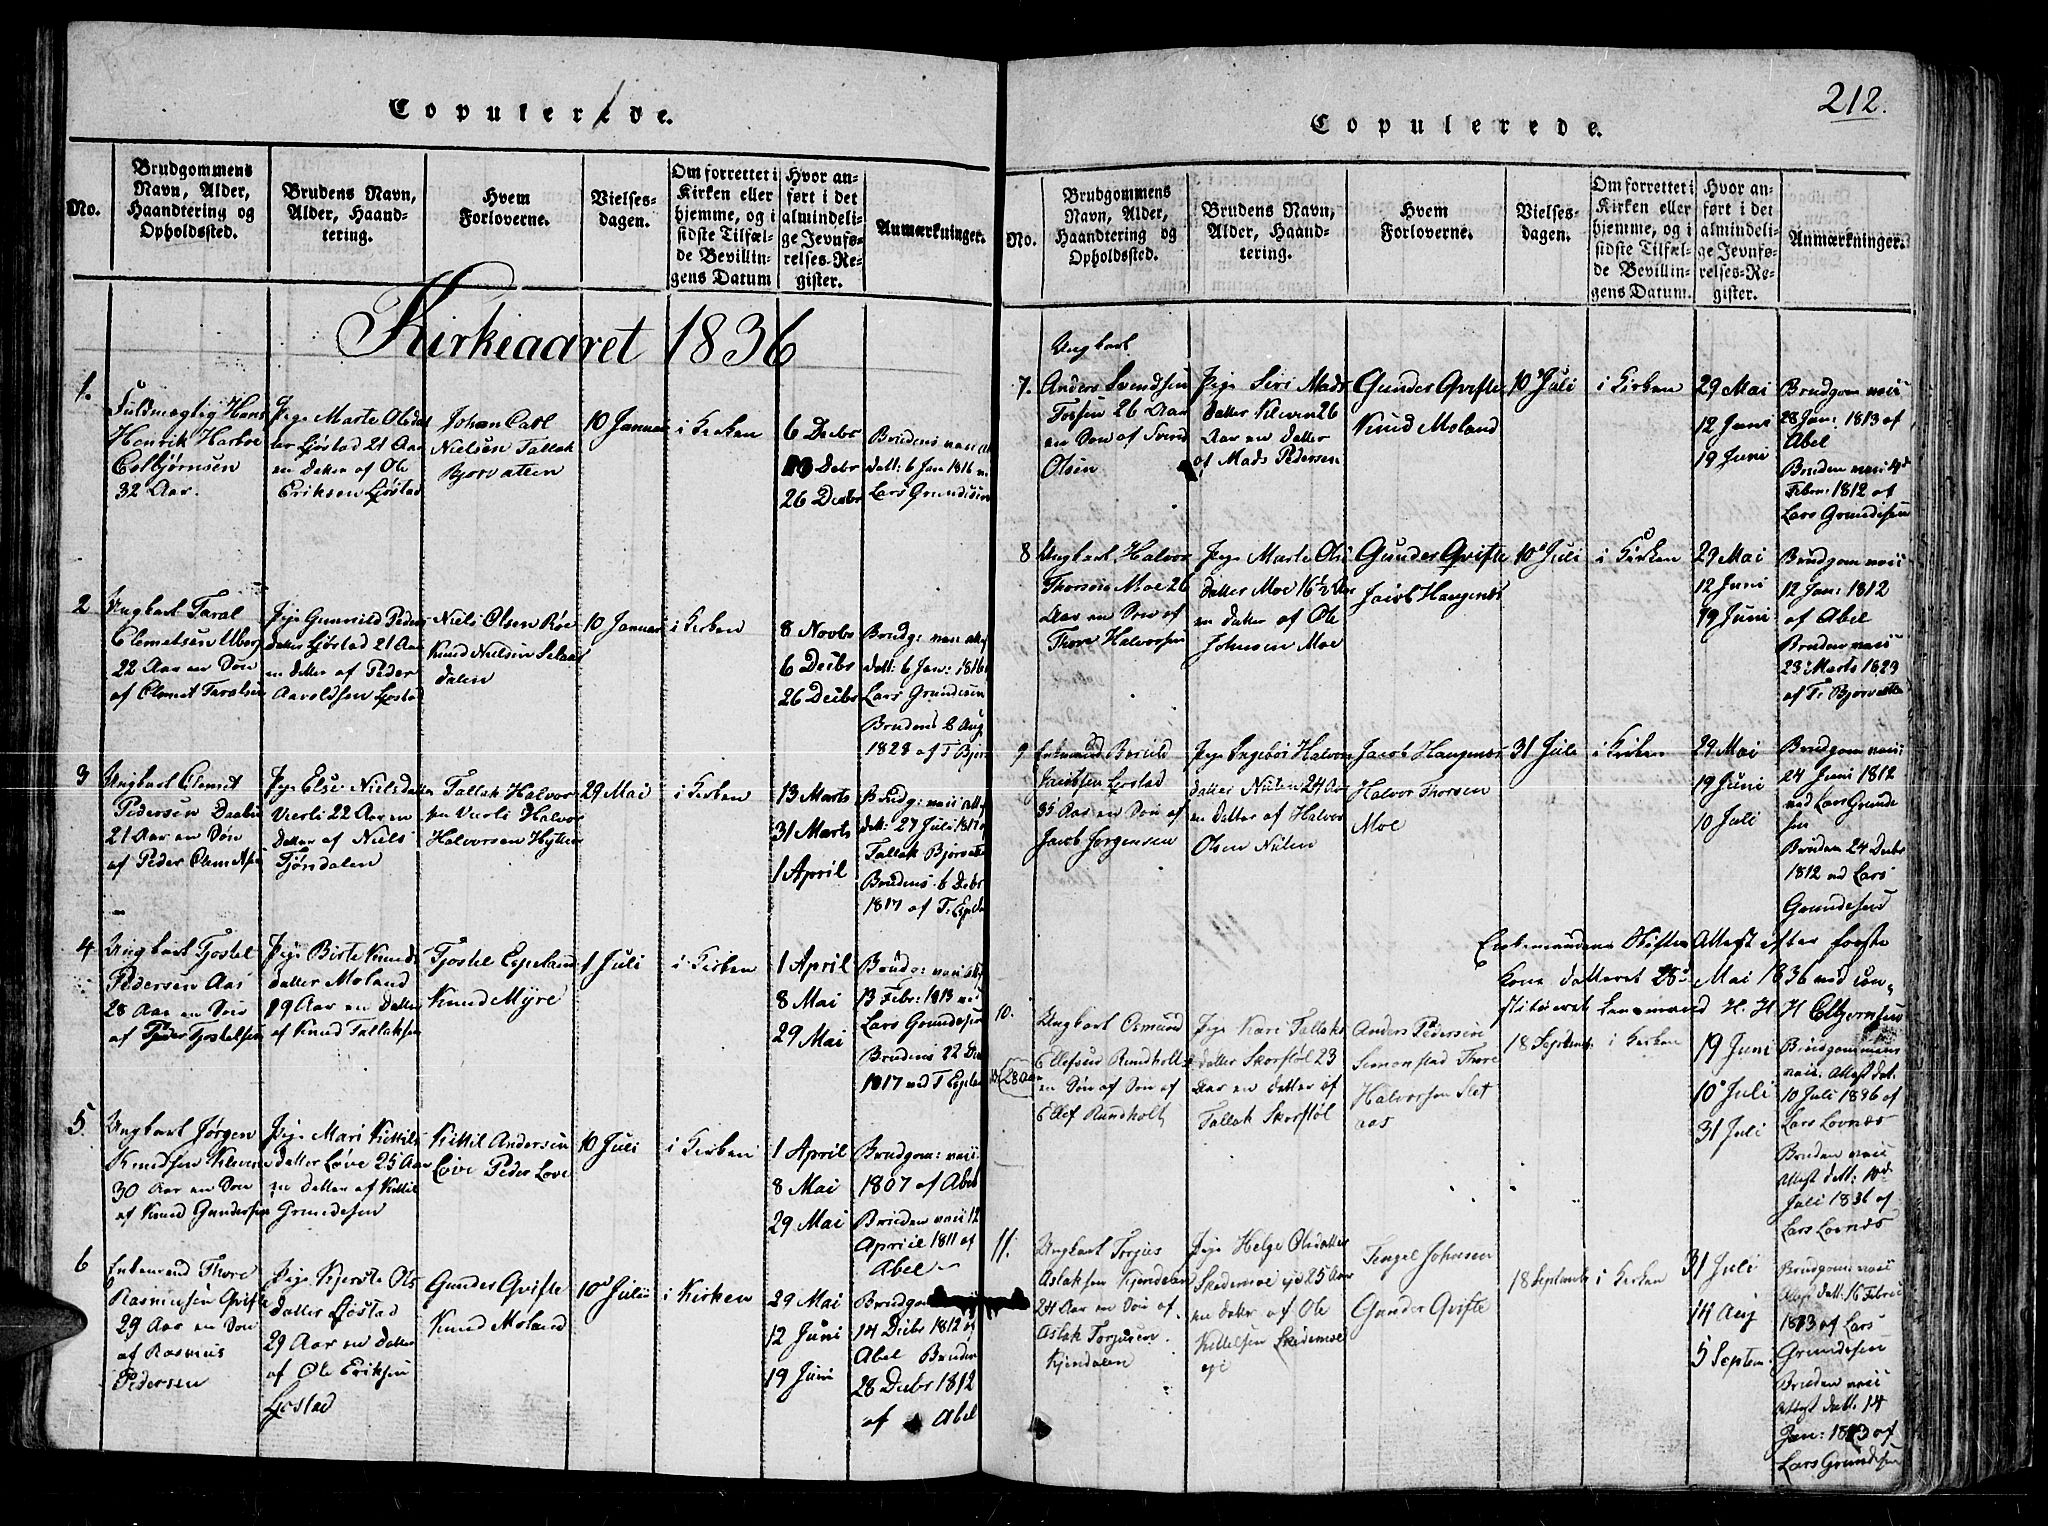 Copulerede.
No.
Brudgommens
Navn, Alder,
Haandtering og
Opholdssted.
Brudens Navn,
Alder, Haand-
tering.
Hvem
Forloverne.
Vielses-
dagen.
Om forrettet i
Kirken eller
hjemme, og i
sidste Tilfæl-
de Bevillin-
gens Datum
Hvor an-
ført i det
almindeli-
ge Jevnfø-
relses-Re-
gister.
Anmærkninger.
Kirkeaaret 1836
1.
Fuldmægtig Hans
Henrik Harboe
Colbjørnsen
32 Aar.
Pige Marte Olsdat
ter Ljøstad 21 Aar
en Datter af Ole
Eriksen Ljøstad
Johan Carl
Nielsen Tallak
Bjorvatten
10 Januar
i Kirken
6 Decbr
Decbr
26 Decbr
Brudens
datt: 6 Jan 1816
Lars Grundesen
2
Ungkarl Taral
Clemetsen Uberg
22 Aar en Søn
af Clemet Taralsen
Pige Gunvild Peders
datter Ljøstad 21 Aar
en datter af Peder
Aaroldsen Ljøstad
Niels Olsen Røe
Knud Nielsen Selaas
dalen
10 Januar
i Kirken
8 Novbr
6 Decbr
26 Decbr
Brudg: vacc
datt: 6 Jan: 1816
Lars Grundesen
Brudens 6 Aug
1828 af T. Bjor
3
Ungkarl Clemet
Pedersen
21 Aar en Søn
af Peder
Pige Else Nielsdatter
Vierli 22 Aar en
datter af Niels
Tjøndalen
Tallak Halvor
sen Vierli Halvor
Halvorsen Hylten
29 Mai
i Kirken
13 Marts
31 Marts
1 April
Brudg: vacc
datt: 27 Juli 1817
Tallak Bjorvatten
Brudens 6 Decbr
1817 af T. Espeland
4
Ungkarl Tjostel
Pedersen Aas
28 Aar en Søn
af Peder Tjostelsen
Pige Birte Knuds
datter Moland
19 Aar en Datter
af Knud Tallaksen
Tjostel Espeland
Knud Myre
1 Juli
i Kirken
1 April
8 Mai
29 Mai
Brudg: vacc
13 Febr: 1813
Lars Grundesen
Brudens 22 Dec
1817 ved T Espeland
5.
Ungkarl Jørgen
Knudsen Kleven
30 Aar en Søn
af Knud Gundersen
Pige Mari Kittils
datter Løve 25 Aar
en datter af Kittil
Grundesen
Kittil Andersen
Løve Peder Løve
10 Juli
i Kirken
1 April
8 Mai
29 Mai
Brudgom: vacc
1807 af Abel
Bruden vacc 12
April 1811 af
Abel
6
Enkemand Thore
Rasmusen Qvifte
29 Aar en Søn
af Rasmus
Pedersen
Pige Kjerste Ols
datter Ljøstad
29 Aar en datter
af Ole Eriksen
Ljøstad
Gunder Qvifte
Knud Moland
10 Julii
i Kirken
29 Mai
12 Juni
19 Juni
Brudgom
14 Decbr 1812 af
Abel Bruden
28 Decbr 1812
af Abel
212.
Copulerede.
No.
Brudgommens
Navn, Alder,
Haandtering og
Opholdssted.
Brudens Navn,
Alder, Haand-
tering.
Hvem
Forloverne.
Vielses-
dagen.
Om forrettet i
Kirken eller
hjemme, og i
sidste Tilfæl-
de Bevillin-
gens Datum.
Hvor an-
ført i det
almindeli-
ge Jevnfø-
relses-Re-
gister.
Anmærkninger.
7.
Ungkarl
Anders Svendsen
Torsen 26 Aar
en Søn af Svend
Olsen
Pige Siri Mads
datter Kleven 26
Aar en datter
af Mads Pedersen
Gunder Qvifte
Knud Moland
10 Juli
i Kirken
29 Mai
12 Juni
19 Juni
Brudgom vacc
28 Jan: 1813 af
Abel
Bruden vacc 4d
Febr: 1812 af
Lars Grundesen
8
Ungkarl Halvor
Thorsen Moe 26
Aar en Søn af
Thore Halvorsen
Pige Marte Ols
datter Moe 16½ Aar
en datter af Ole
Johnsen Moe
Gunder Qvifte
Jacob Haugenes
10 Juli
i Kirken
29 Mai
12 Juni
19 Juni
Brudgom vacc
12 Jan: 1812
af Abel
Bruden vacc
23 Marts 1823
af T. Bjorvatten
9
Enkemand
Jacobsen Ljøstad
35 Aar en Søn af
Jacob Jørgensen
Pige Ingebor Halvors
datter Nelen 24 Aar
en datter af Halvor
Olsen Nelen
Jacob Haugenes
Halvor Thorsen
Moe
31 Juli
i Kirken
29 Mai
19 Juni
10 Juli
Brudgom vacc:
24 Juni 1812
ved Lars Grunde
sen
Bruden 24 Decbr
1812 ved Lars
Grundesen
Enkemandens Skifte Attest efter første
Kone datteret 25d Mai 1836 ved con-
stitueret Lensmand H. H Colbjørnsen
10.
Ungkarl Osmund
Ellefsen Rundholt
28 Aar
en Søn af Søn af
Ellef Rundholt
Pige Kari Tallaks
datter Skorstøl 23
Aar en datter af
Tallak Skorstøl
Anders Pedersen
Simonstad Thore
Halvorsen Slet
aas
18 Septembr
i Kirken
19 Juni
10 Juli
31 Juli
Brudgommens
vacc. Attest dat.
10 Juli 1836 af
Lars Lovnes
Bruden vacc
Attest datt: 10d
Juli 1836 af
Lars Lovnes
11.
Ungkarl Torjus
Aslaksen Kjendalen
24 Aar en Søn af
Aslak Torjusen
Kjendalen
Pige Helge Olsdatter
Skedemoe 25 Aar
en datter af Ole
Kittelsen Skedemoe
Tengel Johnsen
Gunder Qvifte
18 Septembr
i Kirken
31 Juli
14 Aug
5 Septem.
Brudgoms vacc
Attest datt: 16 Febru
1813 af Lars
Grundesen
Bruden vacc
Attest datt: 14
Jan: 1813 af
Lars Grundesen